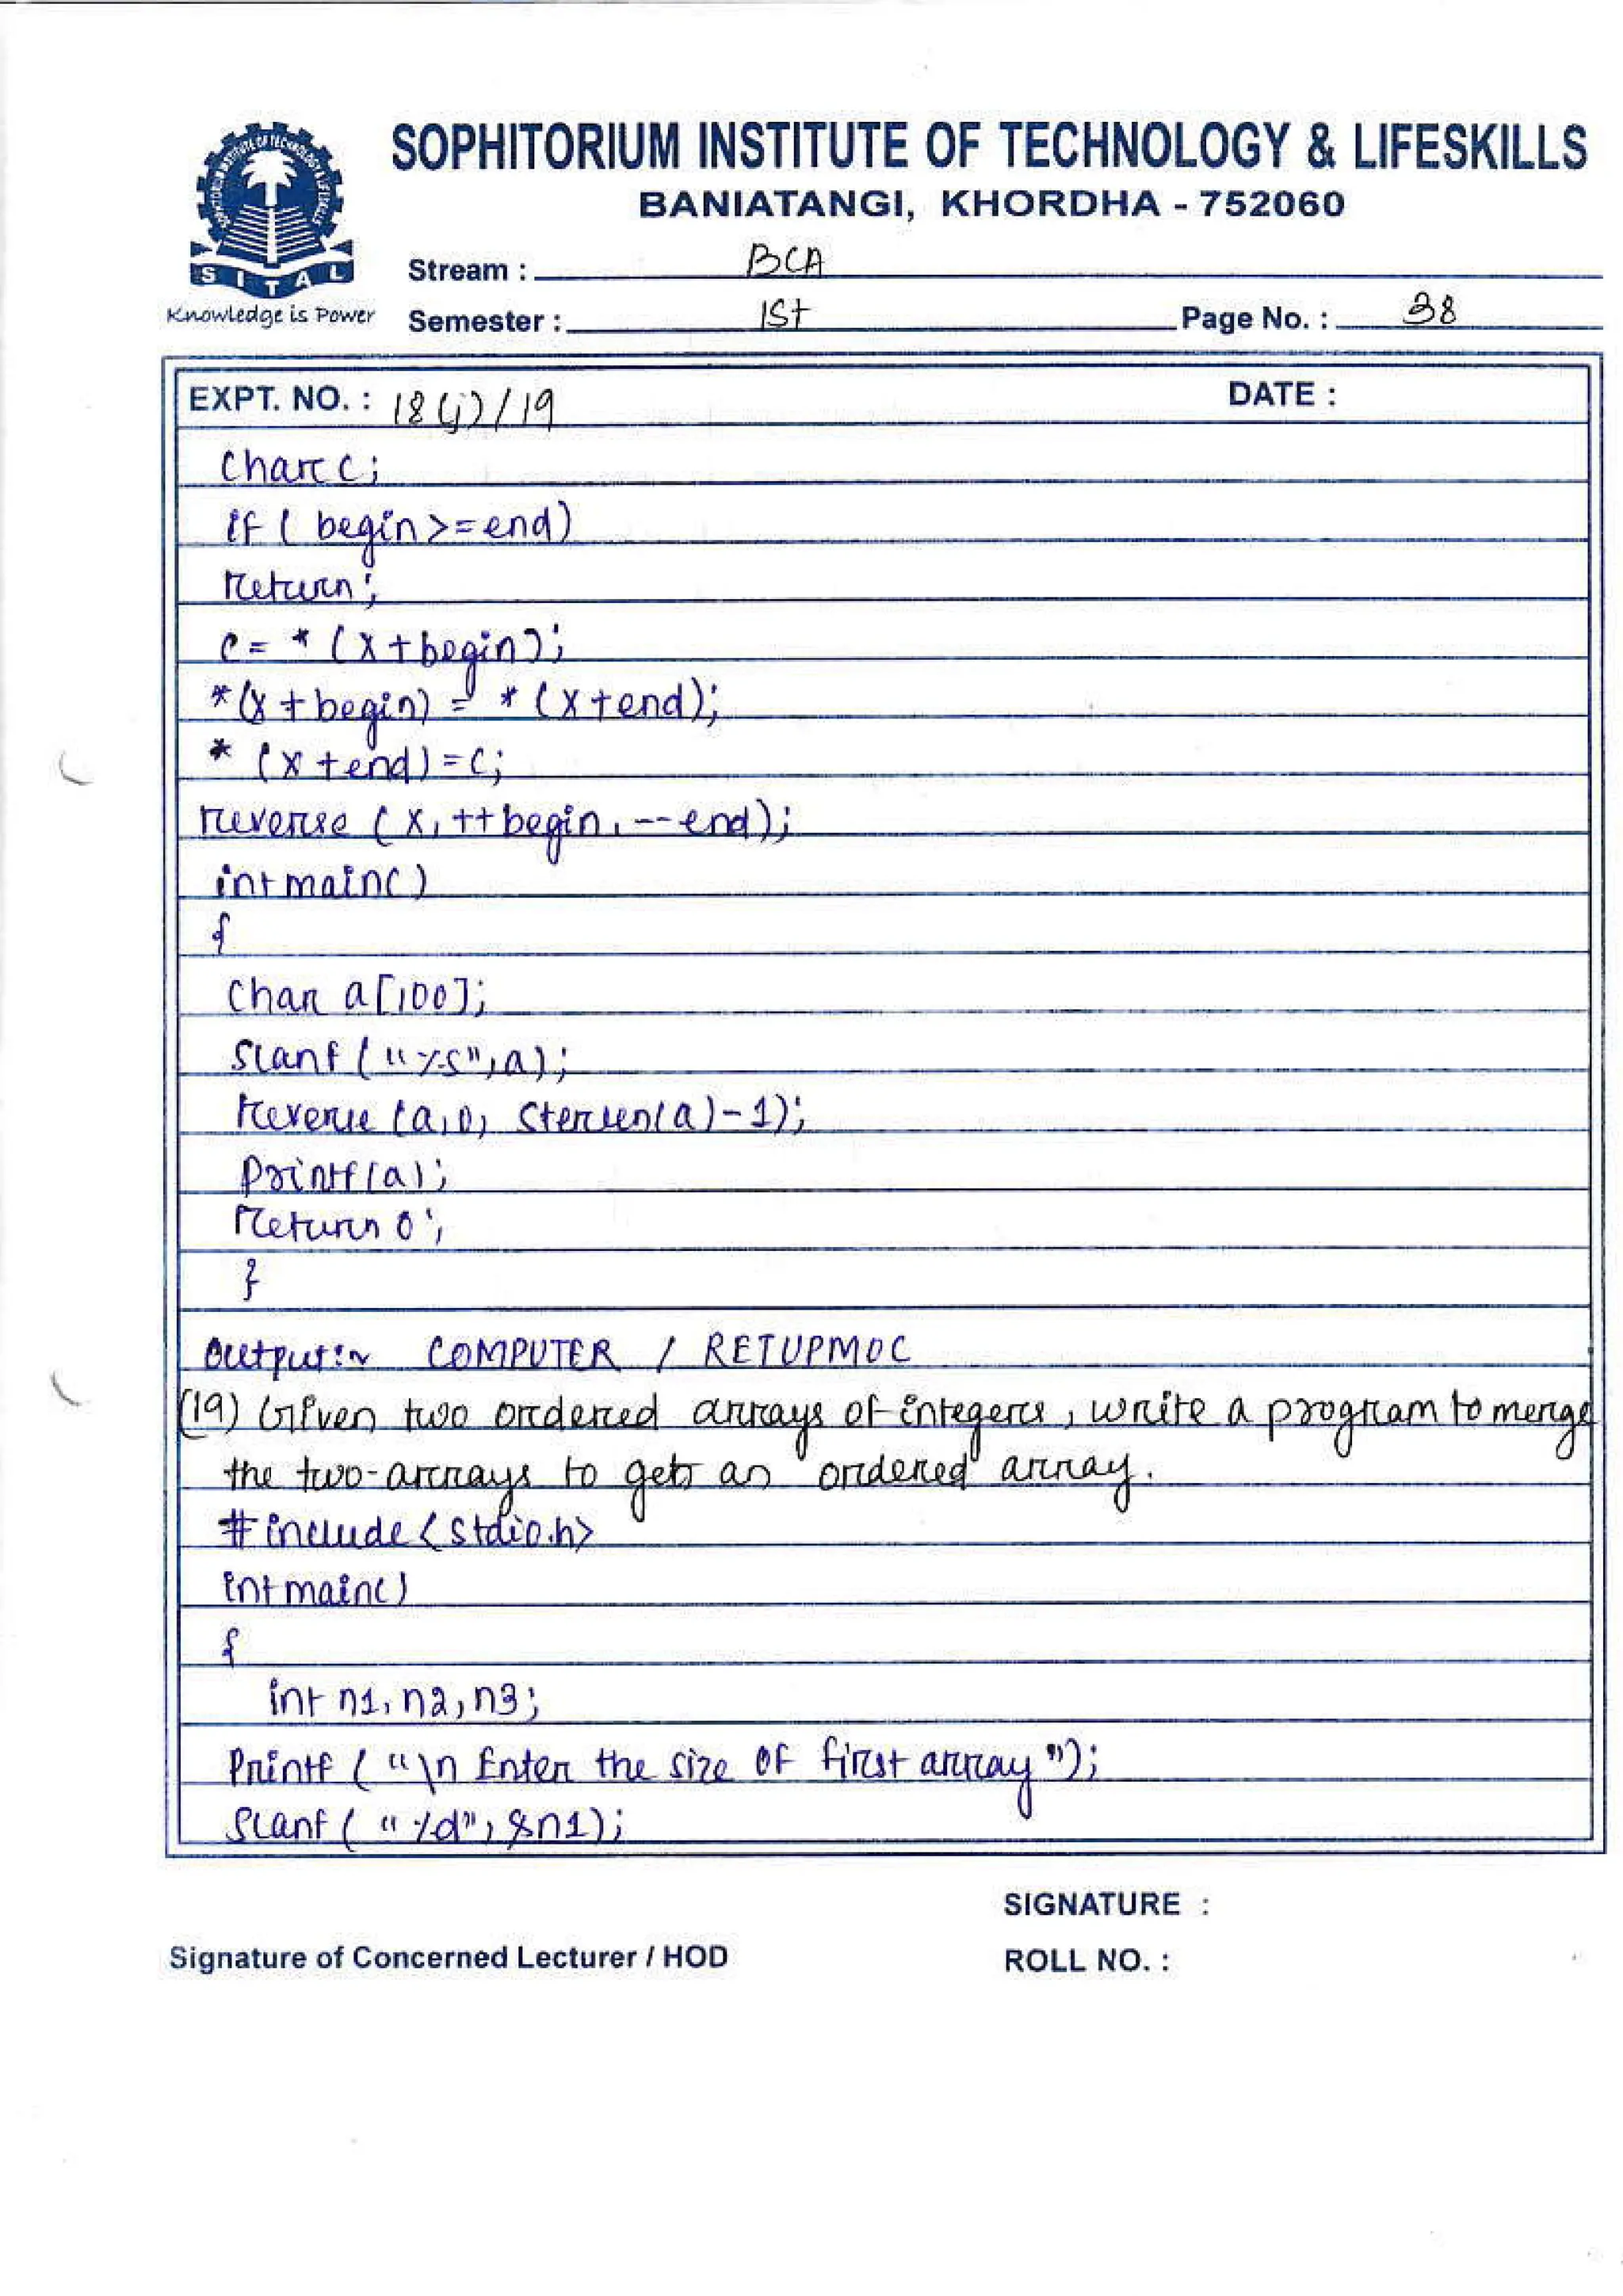 SOPHITORIUM INSTITUTE OF TECHNOLOGY & LIFESKILLS
BANIATANGI, KHORDHA - 752060
SITAL
Knowledge is Power
Stream : BCA
Semester : 1St
Page No. : 38
EXPT. NO. : 18(j)/19
DATE :
Char c;
if ( begin >= end)
return;
c = * (x + begin);
*(x + begin) = * (x + end);
* (x + end) = c;
reverse (x, ++begin, --end);
int main()
{
Char a[100];
Scanf ("%s", a);
reverse (a, 0, strlen(a)-1);
printf(a);
return 0;
}
Output:~ COMPUTER / RETUPMOC
(19) Given two ordered arrays of integers, write a program to merge
the two-arrays to gets an ordered array.
#include <stdio.h>
int main()
{
int n1, n2, n3;
Printf ("\n Enter the size of first array");
Scanf ("%d", &n1);
SIGNATURE :
Signature of Concerned Lecturer / HOD
ROLL NO. :